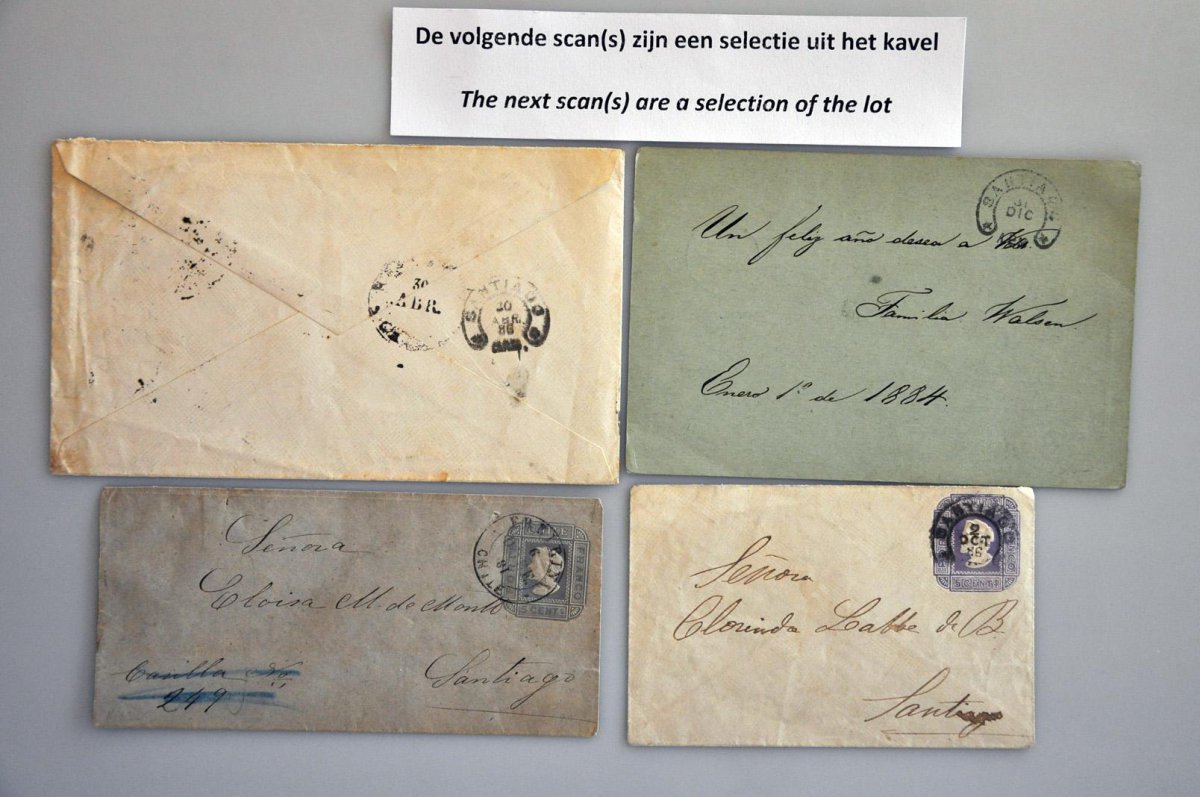 De volgende scan(s) zijn een selectie uit het kavel
The next scan(s) are a selection of the lot
30
ABR.
SANTIAGO
30
ABR.
86
SANTIAGO
31
DIC
Un feliz año desea a
Familia Walsen
Enero 1º de 1884.
CHILE
FRANCO
5 CENTS
Señora
Eloisa M. de Montt
Casilla No.
249
Santiago
SANTIAGO
2
OCT
86
5 CENTS
Señora
Clorinda Labbe de B.
Santiago